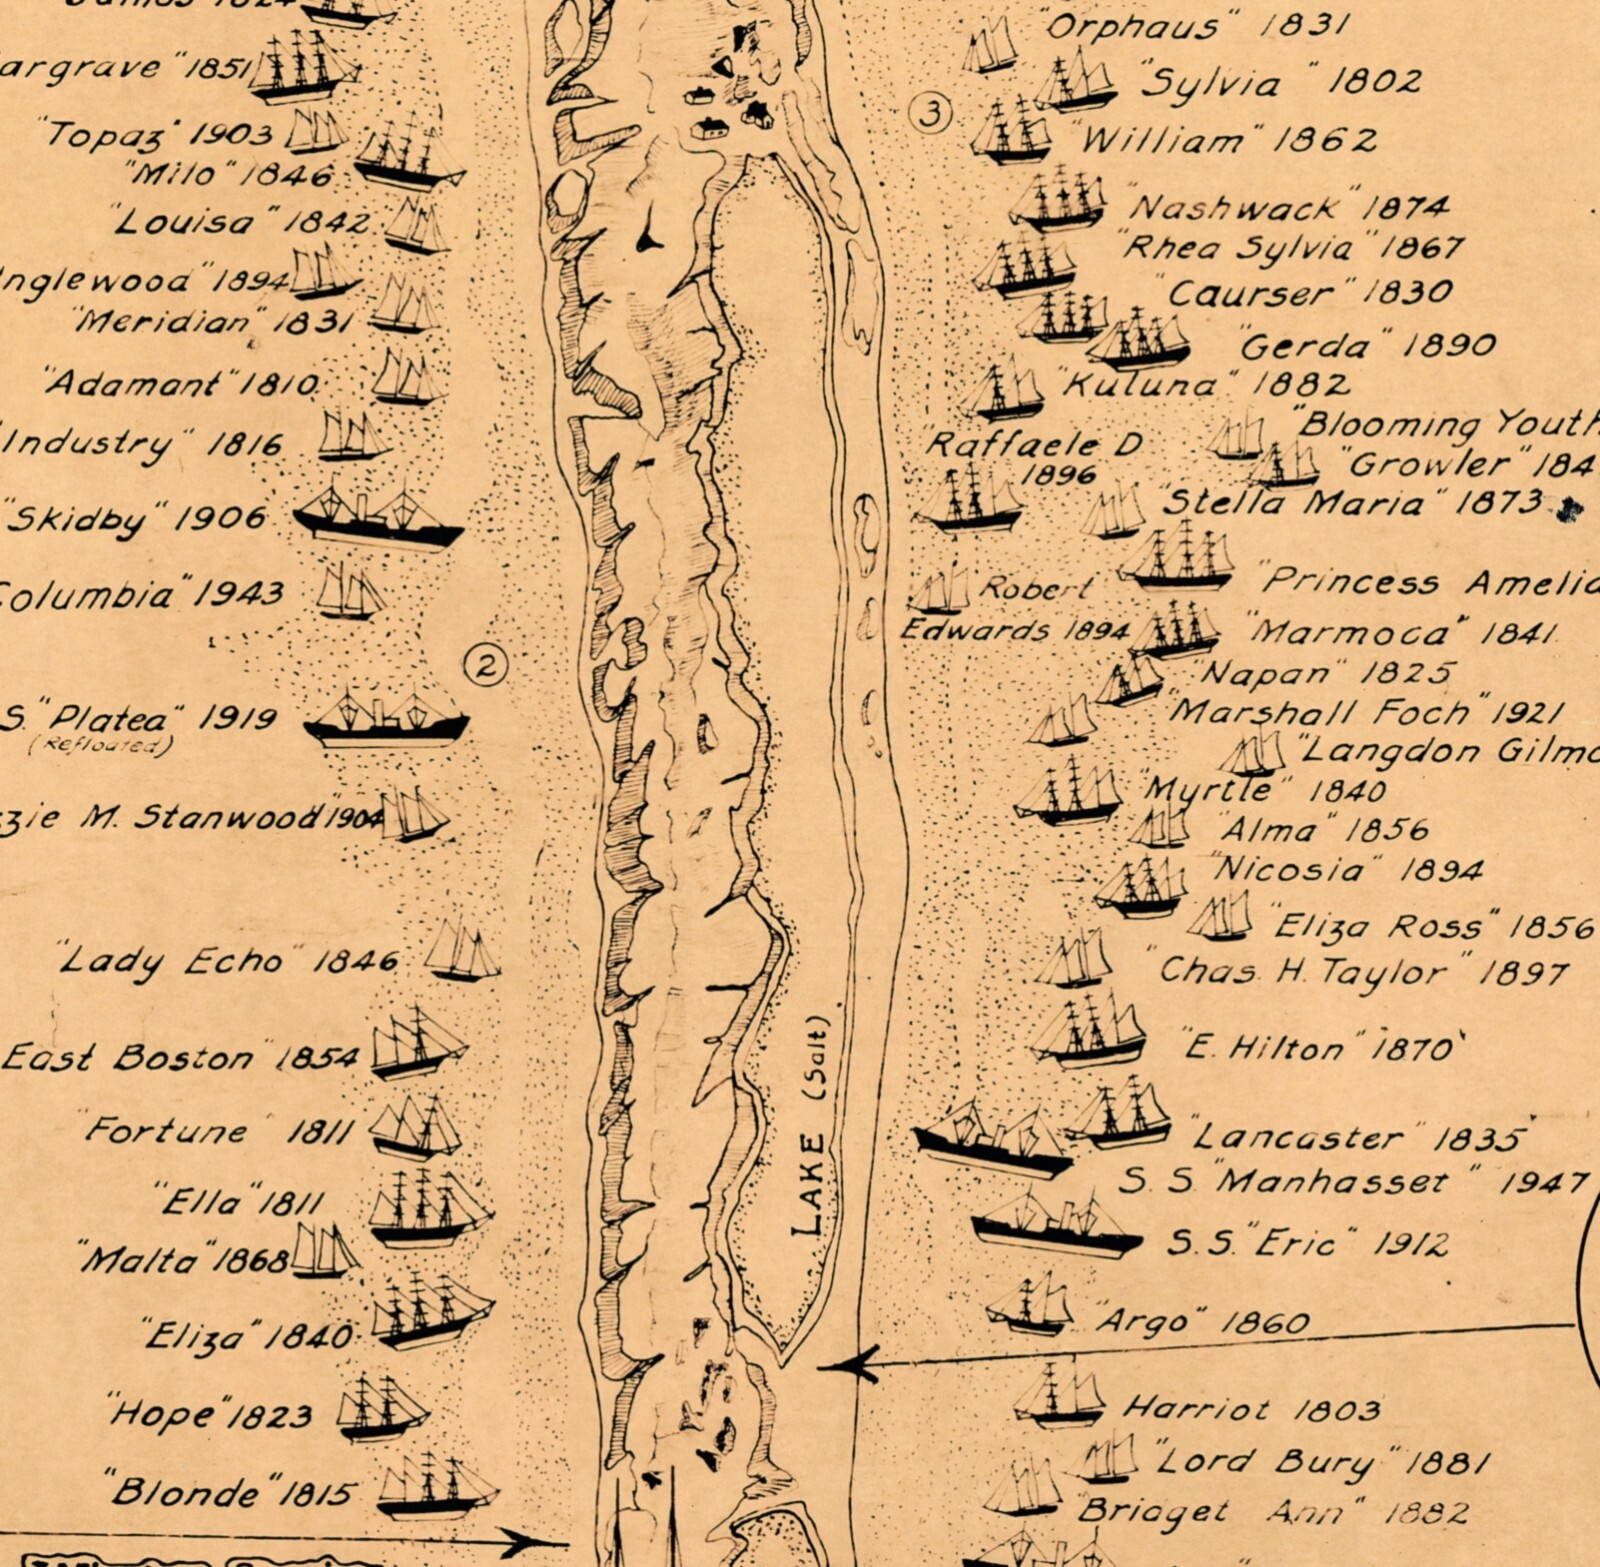 James 1824
argrave" 1851
"Topaz" 1903
"Milo" 1846
"Louisa" 1842
nglewood" 1894
"Meridian" 1831
"Adamant" 1810
"Industry" 1816
"Skidby" 1906
Columbia" 1943
2
S. "Platea" 1919
(Refloated)
zie M. Stanwood 1904
"Lady Echo" 1846
East Boston" 1854
"Fortune" 1811
"Ella" 1811
"Malta" 1868
"Eliza" 1840
"Hope" 1823
"Blonde" 1815
LAKE (Salt)
"Orphaus" 1831
"Sylvia" 1802
3
"William" 1862
"Nashwack" 1874
"Rhea Sylvia" 1867
"Caurser" 1830
"Gerda" 1890
"Kuluna" 1882
"Blooming Youth
"Raffaele D
1896
"Growler" 184
"Stella Maria" 1873
"Princess Amelia
Robert
Edwards 1894
"Marmoca" 1841
"Napan" 1825
"Marshall Foch" 1921
"Langdon Gilmo
"Myrtle" 1840
"Alma" 1856
"Nicosia" 1894
"Eliza Ross" 1856
"Chas. H. Taylor" 1897
"E. Hilton" 1870
"Lancaster" 1835
S.S. "Manhasset" 1947
S.S. "Eric" 1912
"Argo" 1860
Harriot 1803
"Lord Bury" 1881
"Bridget Ann" 1882